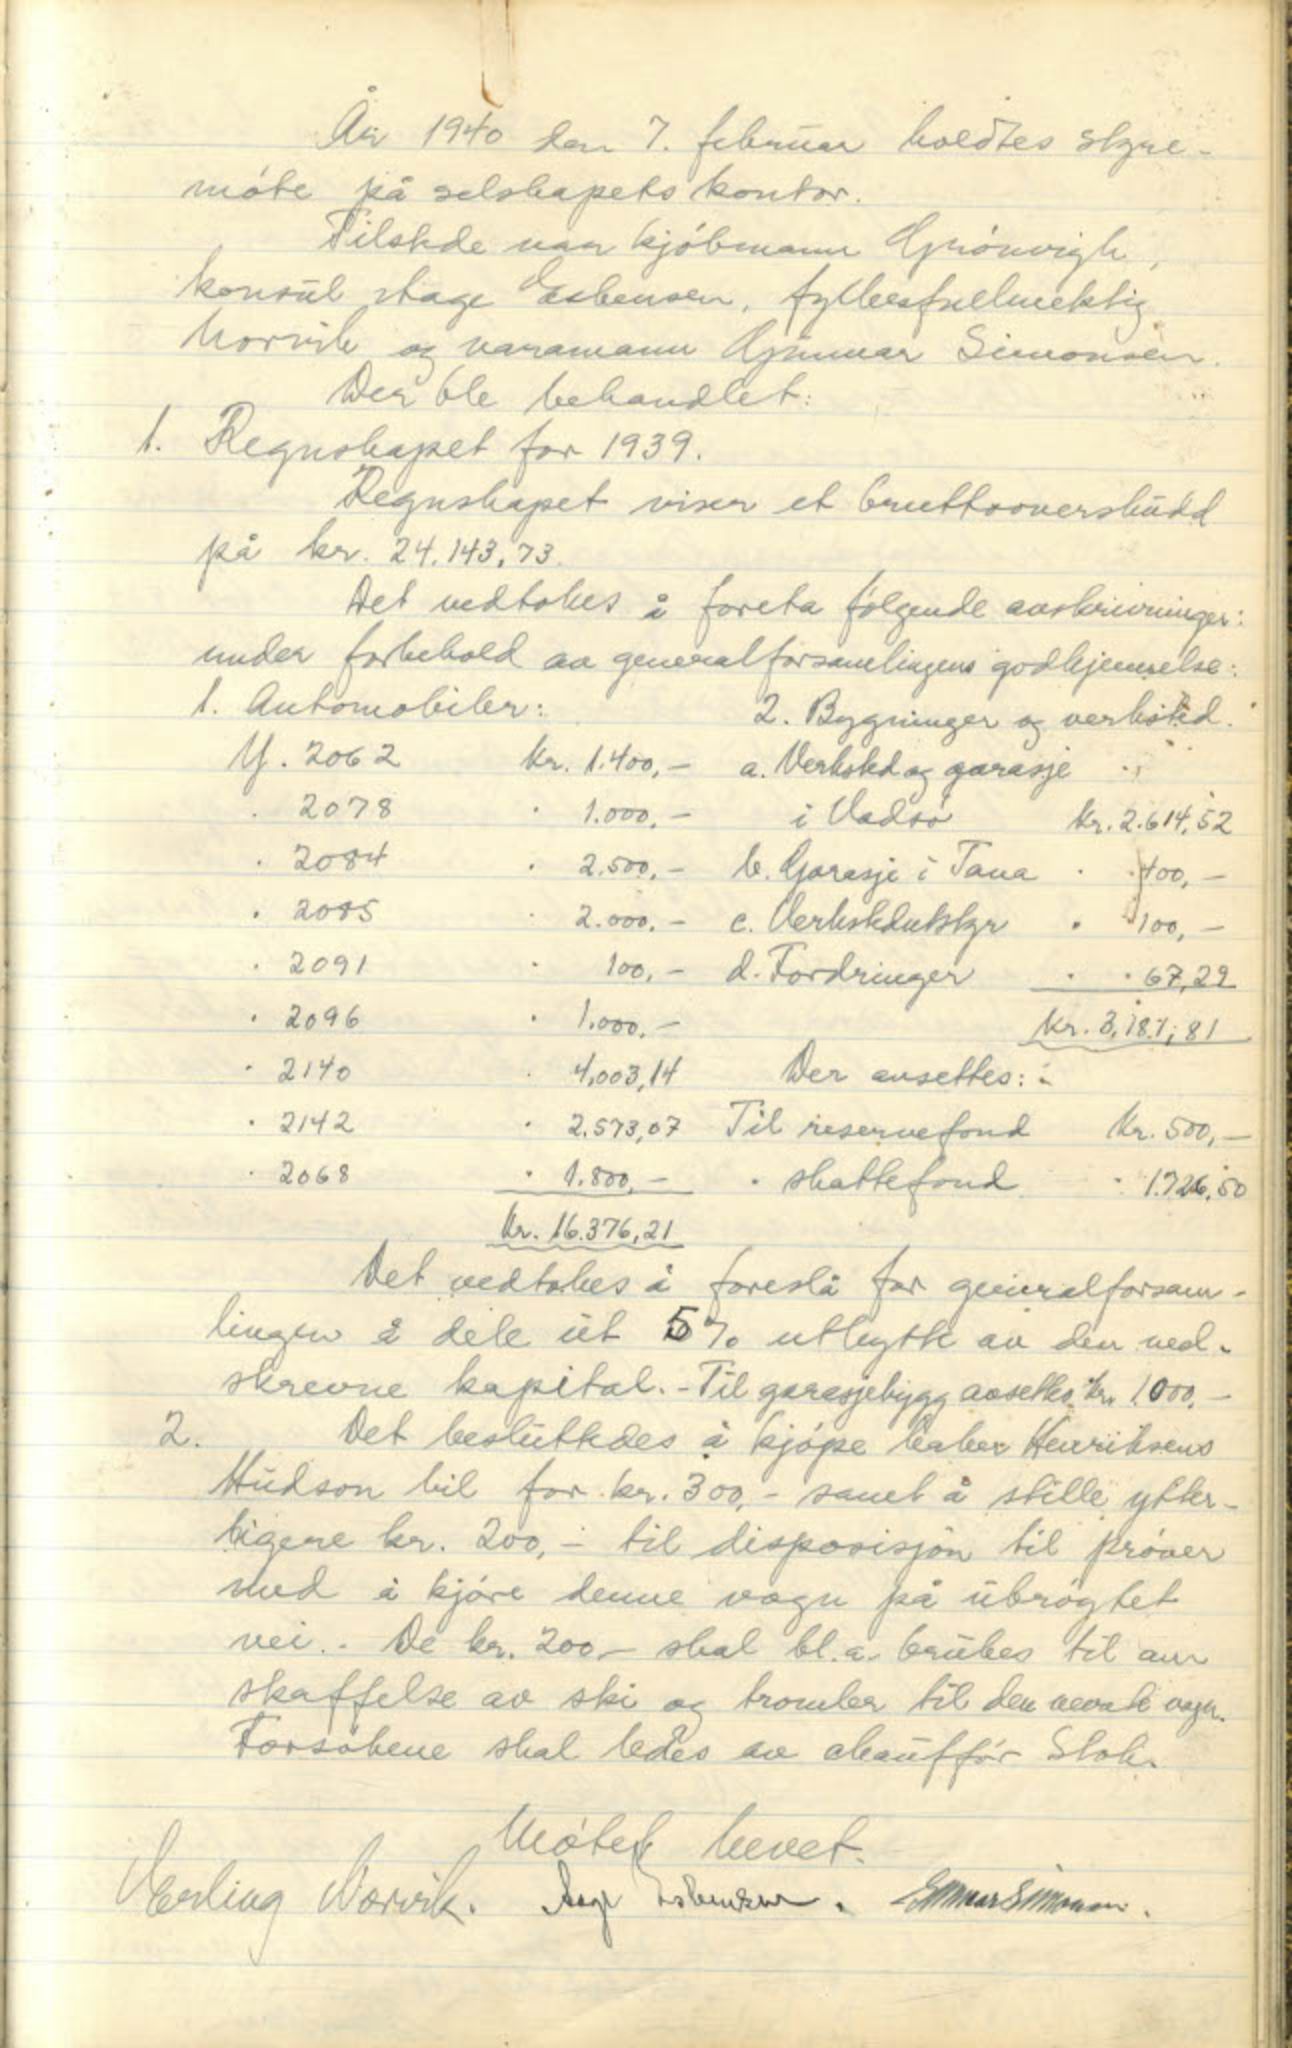 År 1940 den 7. februar holdtes styre-
møte på selskapets kontor.
Tilstede var kjøbmann Grønvigh,
konsul Aage Esbensen, fylkesfullmektig
Norvik og varamann Gunnar Simonsen.
Der ble behandlet:
1. Regnskapet for 1939.
Regnskapet viser et bruttooverskudd
på kr. 24.143,73.
Det vedtokes å foreta følgende avskrivninger:
under forbehold av generalforsamlingens godkjennelse:
1. Automobiler: 2. Bygninger og verksted.
Y. 2062 kr. 1.400,- a. Verksted og garasje
" 2078 " 1.000,- i Vadsø kr. 2.614,52
" 2084 " 2.500,- b. Garasje i Tana " 400,-
" 2085 " 2.000,- c. Verkstedutstyr " 100,-
" 2091 " 100,- d. Fordringer " 67,29
" 2096 " 1.000,- kr. 3.181,81
" 2140 " 4.003,14 Der avsettes:
" 2142 " 2.573,07 Til reservefond kr. 500,-
" 2068 " 1.800,- " skattefond " 1.726,50
kr. 16.376,21
Det vedtokes å foreslå for generalforsam-
lingen å dele ut 5% utbytte av den ned-
skrevne kapital. - Til garasjebygg avsettes kr. 1.000,-
2. Det besluttedes å kjøpe Henriksens
Hudson bil for kr. 300,- samt å stille ytter-
ligere kr. 200,- til disposisjon til prøver
med å kjøre denne vogn på ubrøytet
vei. - De kr. 200,- skal bl.a. brukes til an
skaffelse av ski og tromler til den nevnte vogn.
Forsøkene skal ledes av chauffør Stok.
Møtet hevet.
Erling Norvik. Aage Esbensen. Gunnar Simonsen.